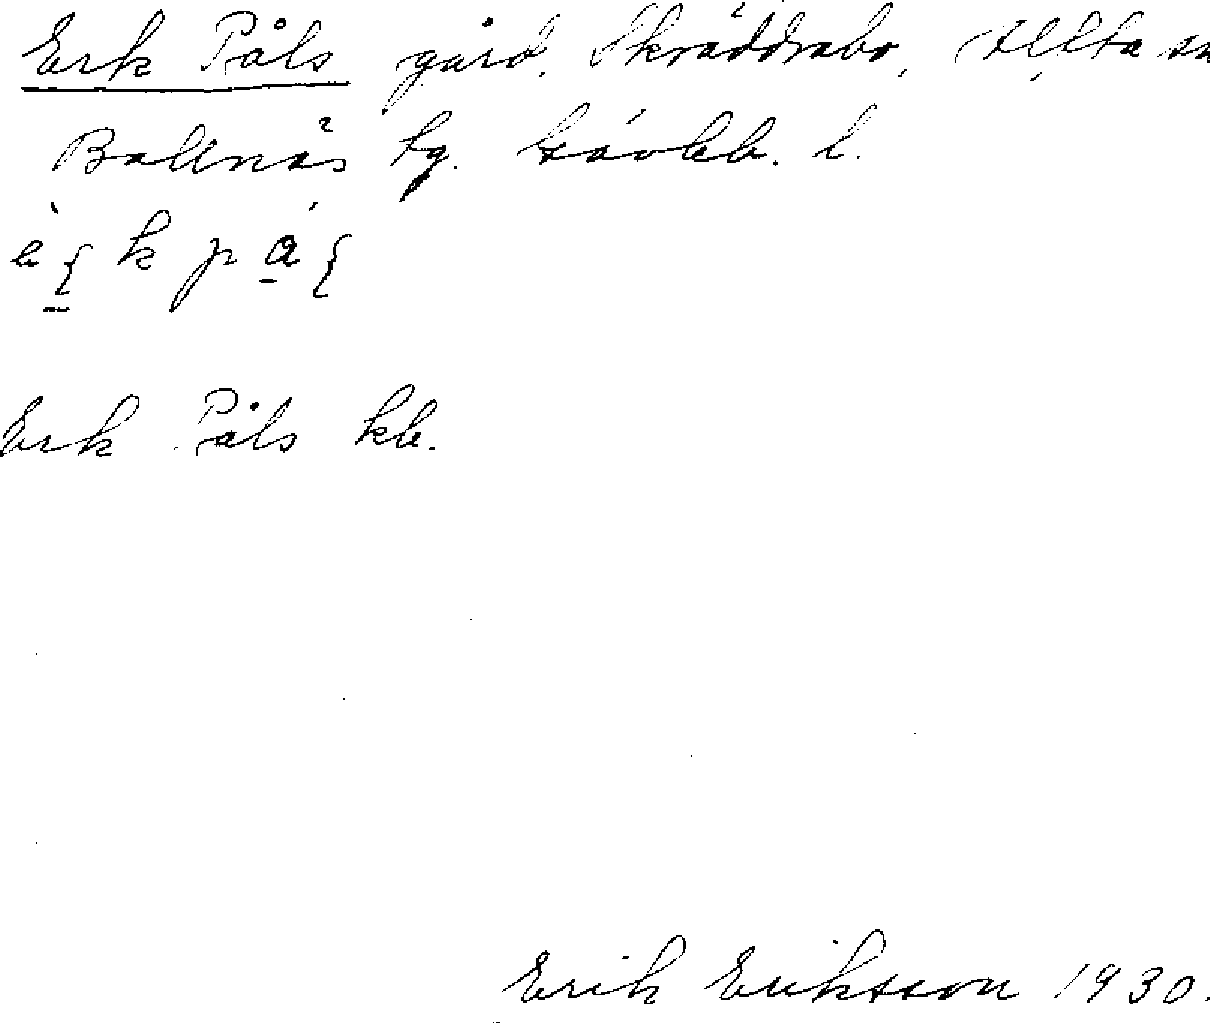 Erk Påls gård, Skräddrabo, Alfta sn
Bollnäs tg. Gävleb. l.
Erk Påls kb.
Erik Eriksson 1930.